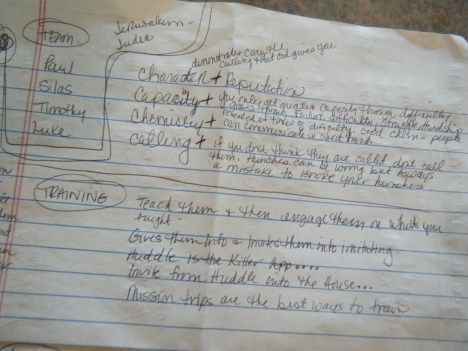 TEAM
Jerusalem -
Judea
Paul
Silas
Timothy
Luke
demonstrate
calling that God gives you
Character + Reputation
Capacity + you only get greater capacity through difficulty
stress, strain, failure, difficulty, struggle, hardship
Chemistry + looked at times of difficulty, good chem = people
can communicate in short hand
calling + if you don't think they are called don't call
them. Hunches can be wrong but always
a mistake to ignore your hunches
TRAINING
Teach them & then engage them on what you
taught.
Gives them Info & Invites them into imitating.
Huddle is the Killer App....
Invite from Huddle into the House...
Mission trips are the best ways to train